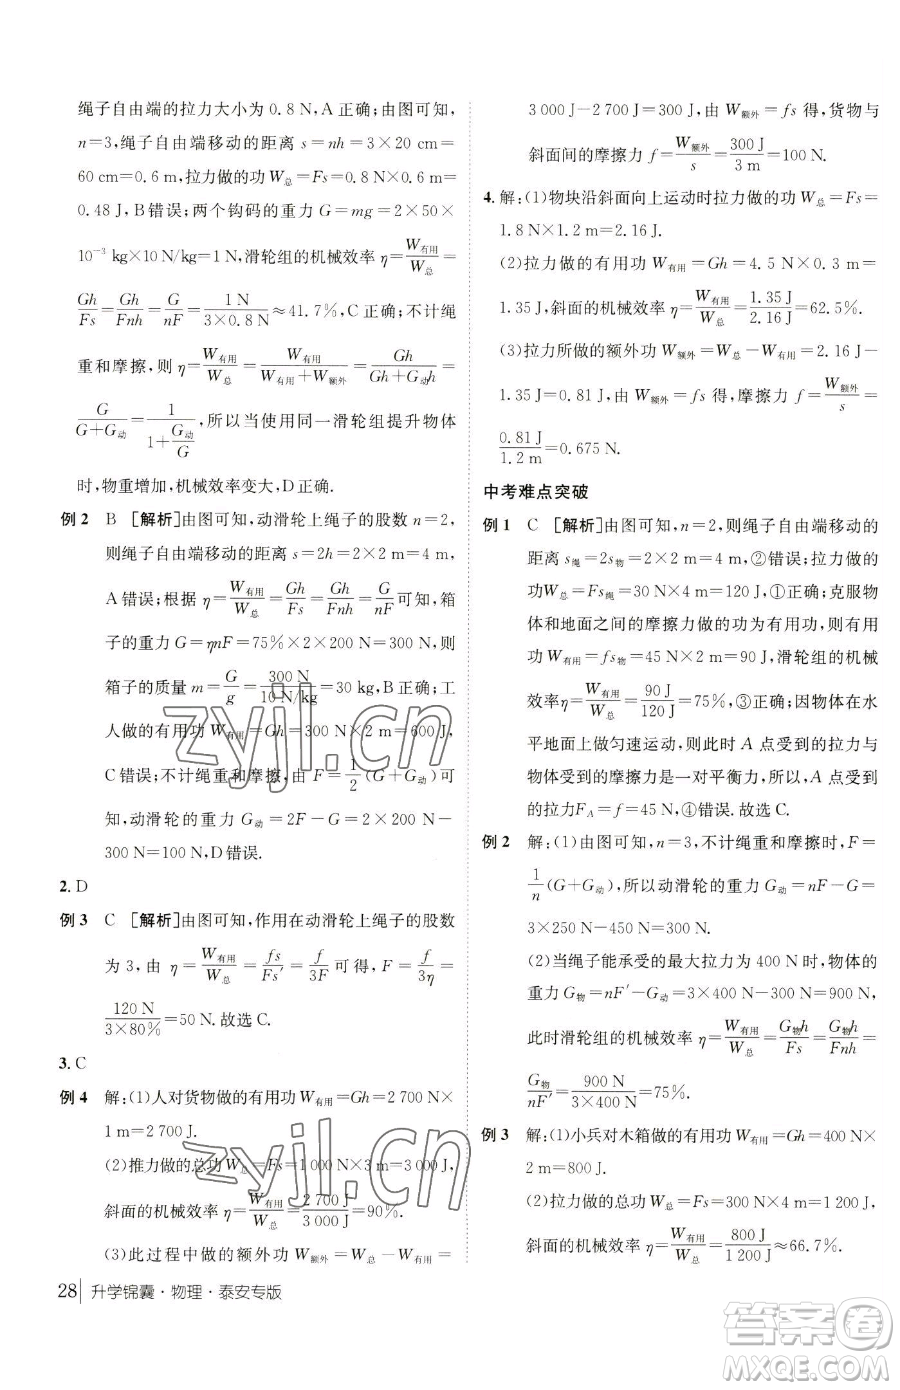 绳子自由端的拉力大小为 0.8 N,A 正确;由图可知,
n=3,绳子自由端移动的距离 s=nh=3×20 cm=
60 cm=0.6 m,拉力做的功 W总=Fs=0.8 N×0.6 m=
0.48 J,B 错误;两个钩码的重力 G=mg=2×50×
10⁻³ kg×10 N/kg=1 N,滑轮组的机械效率 η=W有用/W总=
Gh/Fs=Gh/Fnh=G/nF=1 N/(3×0.8 N)≈41.7%,C 正确;不计绳
重和摩擦,则 η=W有用/W总=W有用/(W有用+W额外)=Gh/(Gh+G动h)=
G/(G+G动)=1/(1+G动/G),所以当使用同一滑轮组提升物体
时,物重增加,机械效率变大,D 正确.
例 2 B [解析]由图可知,动滑轮上绳子的股数 n=2,
则绳子自由端移动的距离 s=2h=2×2 m=4 m,
A 错误;根据 η=W有用/W总=Gh/Fs=Gh/Fnh=G/nF可知,箱
子的重力 G=ηnF=75%×2×200 N=300 N,则
箱子的质量 m=G/g=300 N/(10 N/kg)=30 kg,B 正确;工
人做的有用功 W有用=Gh=300 N×2 m=600 J,
C 错误;不计绳重和摩擦,由 F=1/2(G+G动)可
知,动滑轮的重力 G动=2F-G=2×200 N-
300 N=100 N,D 错误.
2. D
例 3 C [解析]由图可知,作用在动滑轮上绳子的股数
为 3,由 η=W有用/W总=fs/Fs′=f/3F可得,F=f/3η=
120 N/(3×80%)=50 N.故选 C.
3. C
例 4 解:(1)人对货物做的有用功 W有用=Gh=2 700 N×
1 m=2 700 J.
(2)推力做的总功 W总=Fs=1 000 N×3 m=3 000 J,
斜面的机械效率 η=W有用/W总=2 700 J/3 000 J=90%.
(3)此过程中做的额外功 W额外=W总-W有用=
28 升学锦囊·物理·泰安专版
3 000 J-2 700 J=300 J,由 W额外=fs 得,货物与
斜面间的摩擦力 f=W额外/s=300 J/3 m=100 N.
4. 解:(1)物块沿斜面向上运动时拉力做的功 W总=Fs=
1.8 N×1.2 m=2.16 J.
(2)拉力做的有用功 W有用=Gh=4.5 N×0.3 m=
1.35 J,斜面的机械效率 η=W有用/W总=1.35 J/2.16 J=62.5%.
(3)拉力所做的额外功 W额外=W总-W有用=2.16 J-
1.35 J=0.81 J,由 W额外=fs 得,摩擦力 f=W额外/s=
0.81 J/1.2 m=0.675 N.
中考难点突破
例 1 C [解析]由图可知,n=2,则绳子自由端移动的
距离 s绳=2s物=2×2 m=4 m,②错误;拉力做的
功W总=Fs绳=30 N×4 m=120 J,①正确;克服物
体和地面之间的摩擦力做的功为有用功,则有用
功 W有用=fs物=45 N×2 m=90 J,滑轮组的机械
效率η=W有用/W总=90 J/120 J=75%,③正确;因物体在水
平地面上做匀速运动,则此时 A 点受到的拉力与
物体受到的摩擦力是一对平衡力,所以,A 点受到
的拉力F_A=f=45 N,④错误.故选 C.
例 2 解:(1)由图可知,n=3,不计绳重和摩擦时,F=
1/n(G+G动),则动滑轮的重力 G动=nF-G=
3×250 N-450 N=300 N.
(2)当绳子能承受的最大拉力为 400 N 时,物体的
重力 G物=nF′-G动=3×400 N-300 N=900 N,
此时滑轮组的机械效率 η=W有用/W总=G物h/Fs=G物h/Fnh=
G物/nF′=900 N/(3×400 N)=75%.
例 3 解:(1)小兵对木箱做的有用功 W有用=Gh=400 N×
2 m=800 J.
(2)拉力做的总功 W总=Fs=300 N×4 m=1 200 J,
斜面的机械效率 η=W有用/W总=800 J/1 200 J≈66.7%.
zyjl.cn
zyjl.cn
答案圈
MXQE.COM